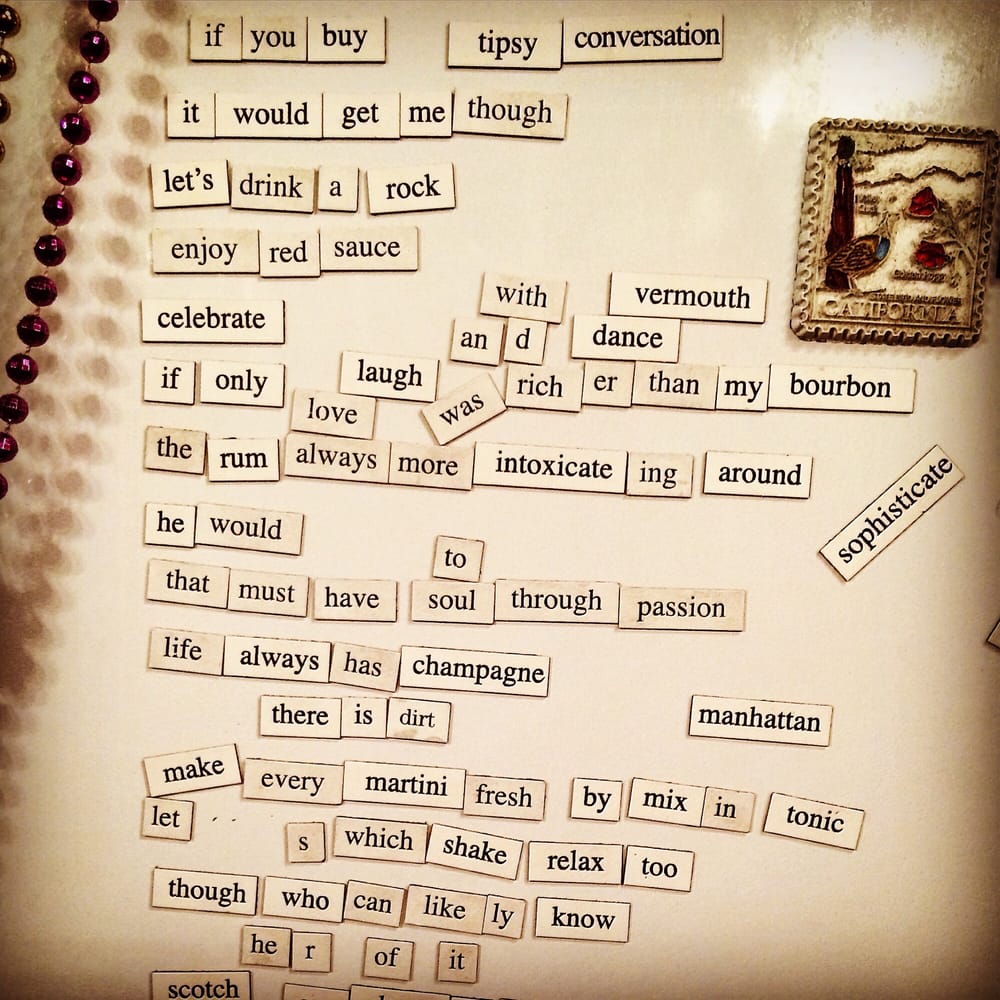 if you buy tipsy conversation
it would get me though
let's drink a rock
enjoy red sauce
with vermouth
celebrate an d dance
if only laugh rich er than my bourbon
love was
the rum always more intoxicate ing around
sophisticate
he would
to
that must have soul through passion
life always has champagne
there is dirt manhattan
make every martini fresh by mix in tonic
let s which shake relax too
though who can like ly know
he r of it
scotch
CALIFORNIA